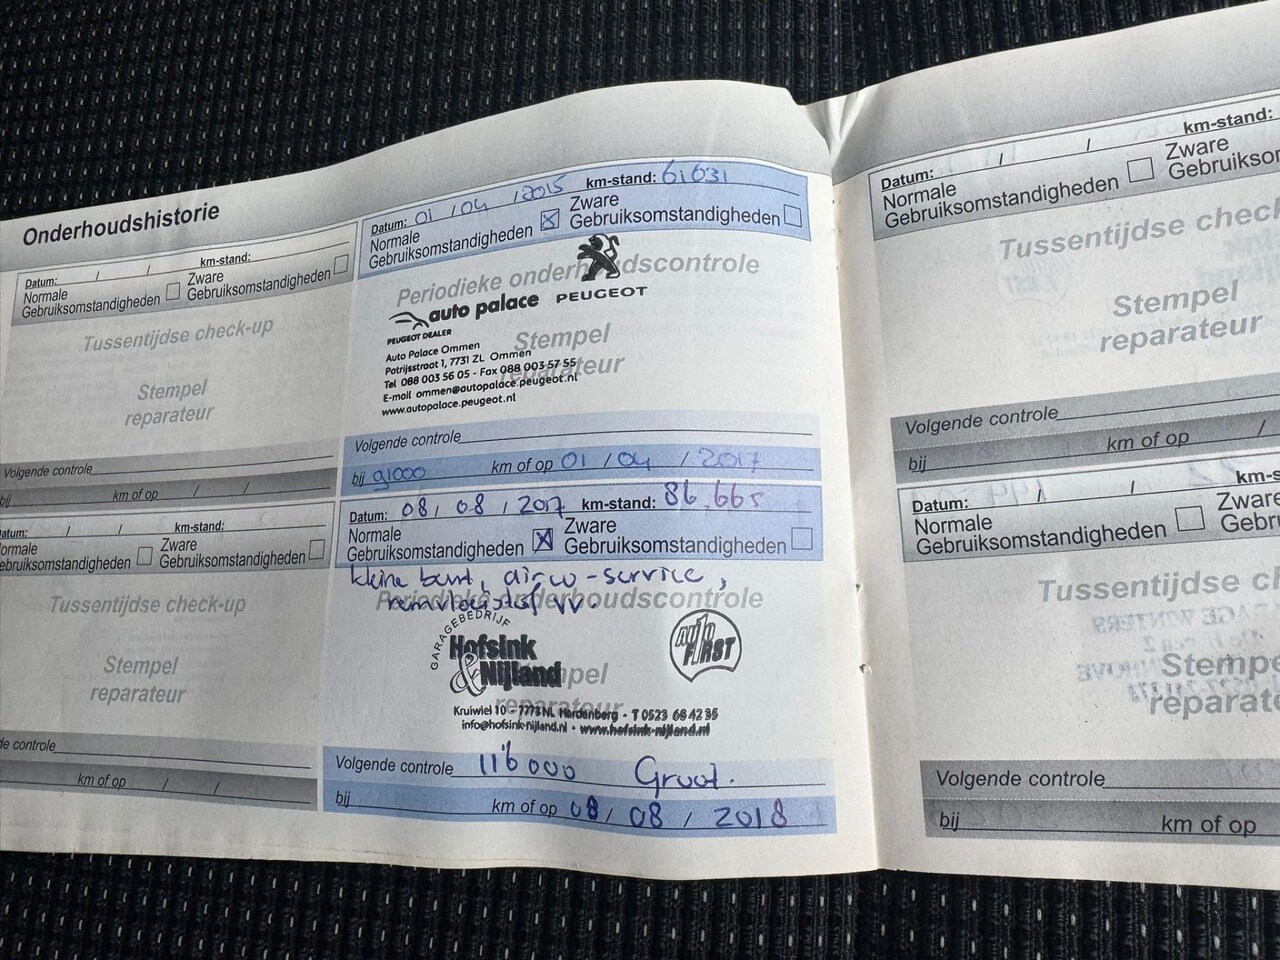 Onderhoudshistorie
Datum: / / km-stand:
Normale Gebruiksomstandigheden Zware Gebruiksomstandigheden
Tussentijdse check-up
Stempel
reparateur
Volgende controle
bij km of op / /
Datum: / / km-stand:
ormale ebruiksomstandigheden Zware Gebruiksomstandigheden
Tussentijdse check-up
Stempel
reparateur
de controle
km of op / /
Datum: 01 / 04 / 2015 km-stand: 61631
Normale Gebruiksomstandigheden Zware Gebruiksomstandigheden
Periodieke onderhoudscontrole
auto palace PEUGEOT
PEUGEOT DEALER
Stempel
reparateur
Auto Palace Ommen
Patrijsstraat 1, 7731 ZL Ommen
Tel 088 003 56 05 - Fax 088 003 57 55
E-mail ommen@autopalace.peugeot.nl
www.autopalace.peugeot.nl
Volgende controle
bij 91000 km of op 01 / 04 / 2017
Datum: 08 / 08 / 2017 km-stand: 86.665
Normale Gebruiksomstandigheden Zware Gebruiksomstandigheden
kleine beurt, airco-service,
remvloeistof vv.
Periodieke onderhoudscontrole
GARAGEBEDRIJF
Hofsink
& Nijland
auto FIRST
Stempel
reparateur
Kruiwiel 10 - 7773 NL Hardenberg - T 0523 68 42 35
info@hofsink-nijland.nl - www.hofsink-nijland.nl
Volgende controle 116000 Groot.
bij km of op 08 / 08 / 2018
Datum: / / km-stand:
Normale Gebruiksomstandigheden Zware Gebruiksom
Tussentijdse check
Stempel
reparateur
Volgende controle
bij km of op /
Datum: / / km-s
Normale Gebruiksomstandigheden Zware Gebr
Tussentijdse ch
Stempe
reparate
Volgende controle
bij km of op